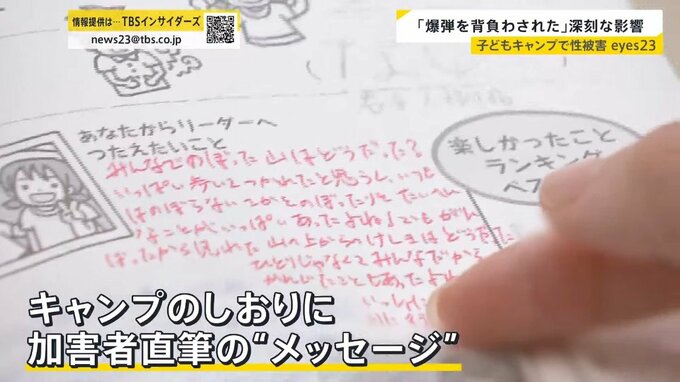 情報提供は…TBSインサイダーズ
news23@tbs.co.jp
「爆弾を背負わされた」深刻な影響
子どもキャンプで性被害 eyes23
あなたからリーダーへ
つたえたいこと
みんなでのぼった山はどうだった?
いっぱい歩いてつかれたと思うし、いつも
はのぼらない
なことがいっぱいあったよね!でもがん
ばったから見れた山の上からのけしきはどうだった
ひとりじゃなくてみんなだから
かんじたこともあったよね
いっしょに
楽しかったこと
ランキング
キャンプのしおりに
加害者直筆の“メッセージ”